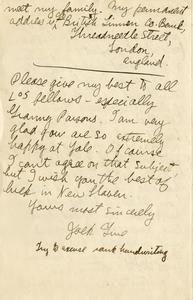 meet my family. My permanent
address is British Linen Co. Bank,
Threadneedle Street,
London,
England.
Please give my best to all
Los fellows – especially
Granny Parsons. I am very
glad you are so extremely
happy at Yale. Of course
I can't agree on that subject
but I wish you the best of
luck in New Haven.
Yours most sincerely
Jock
Try to excuse rank handwriting